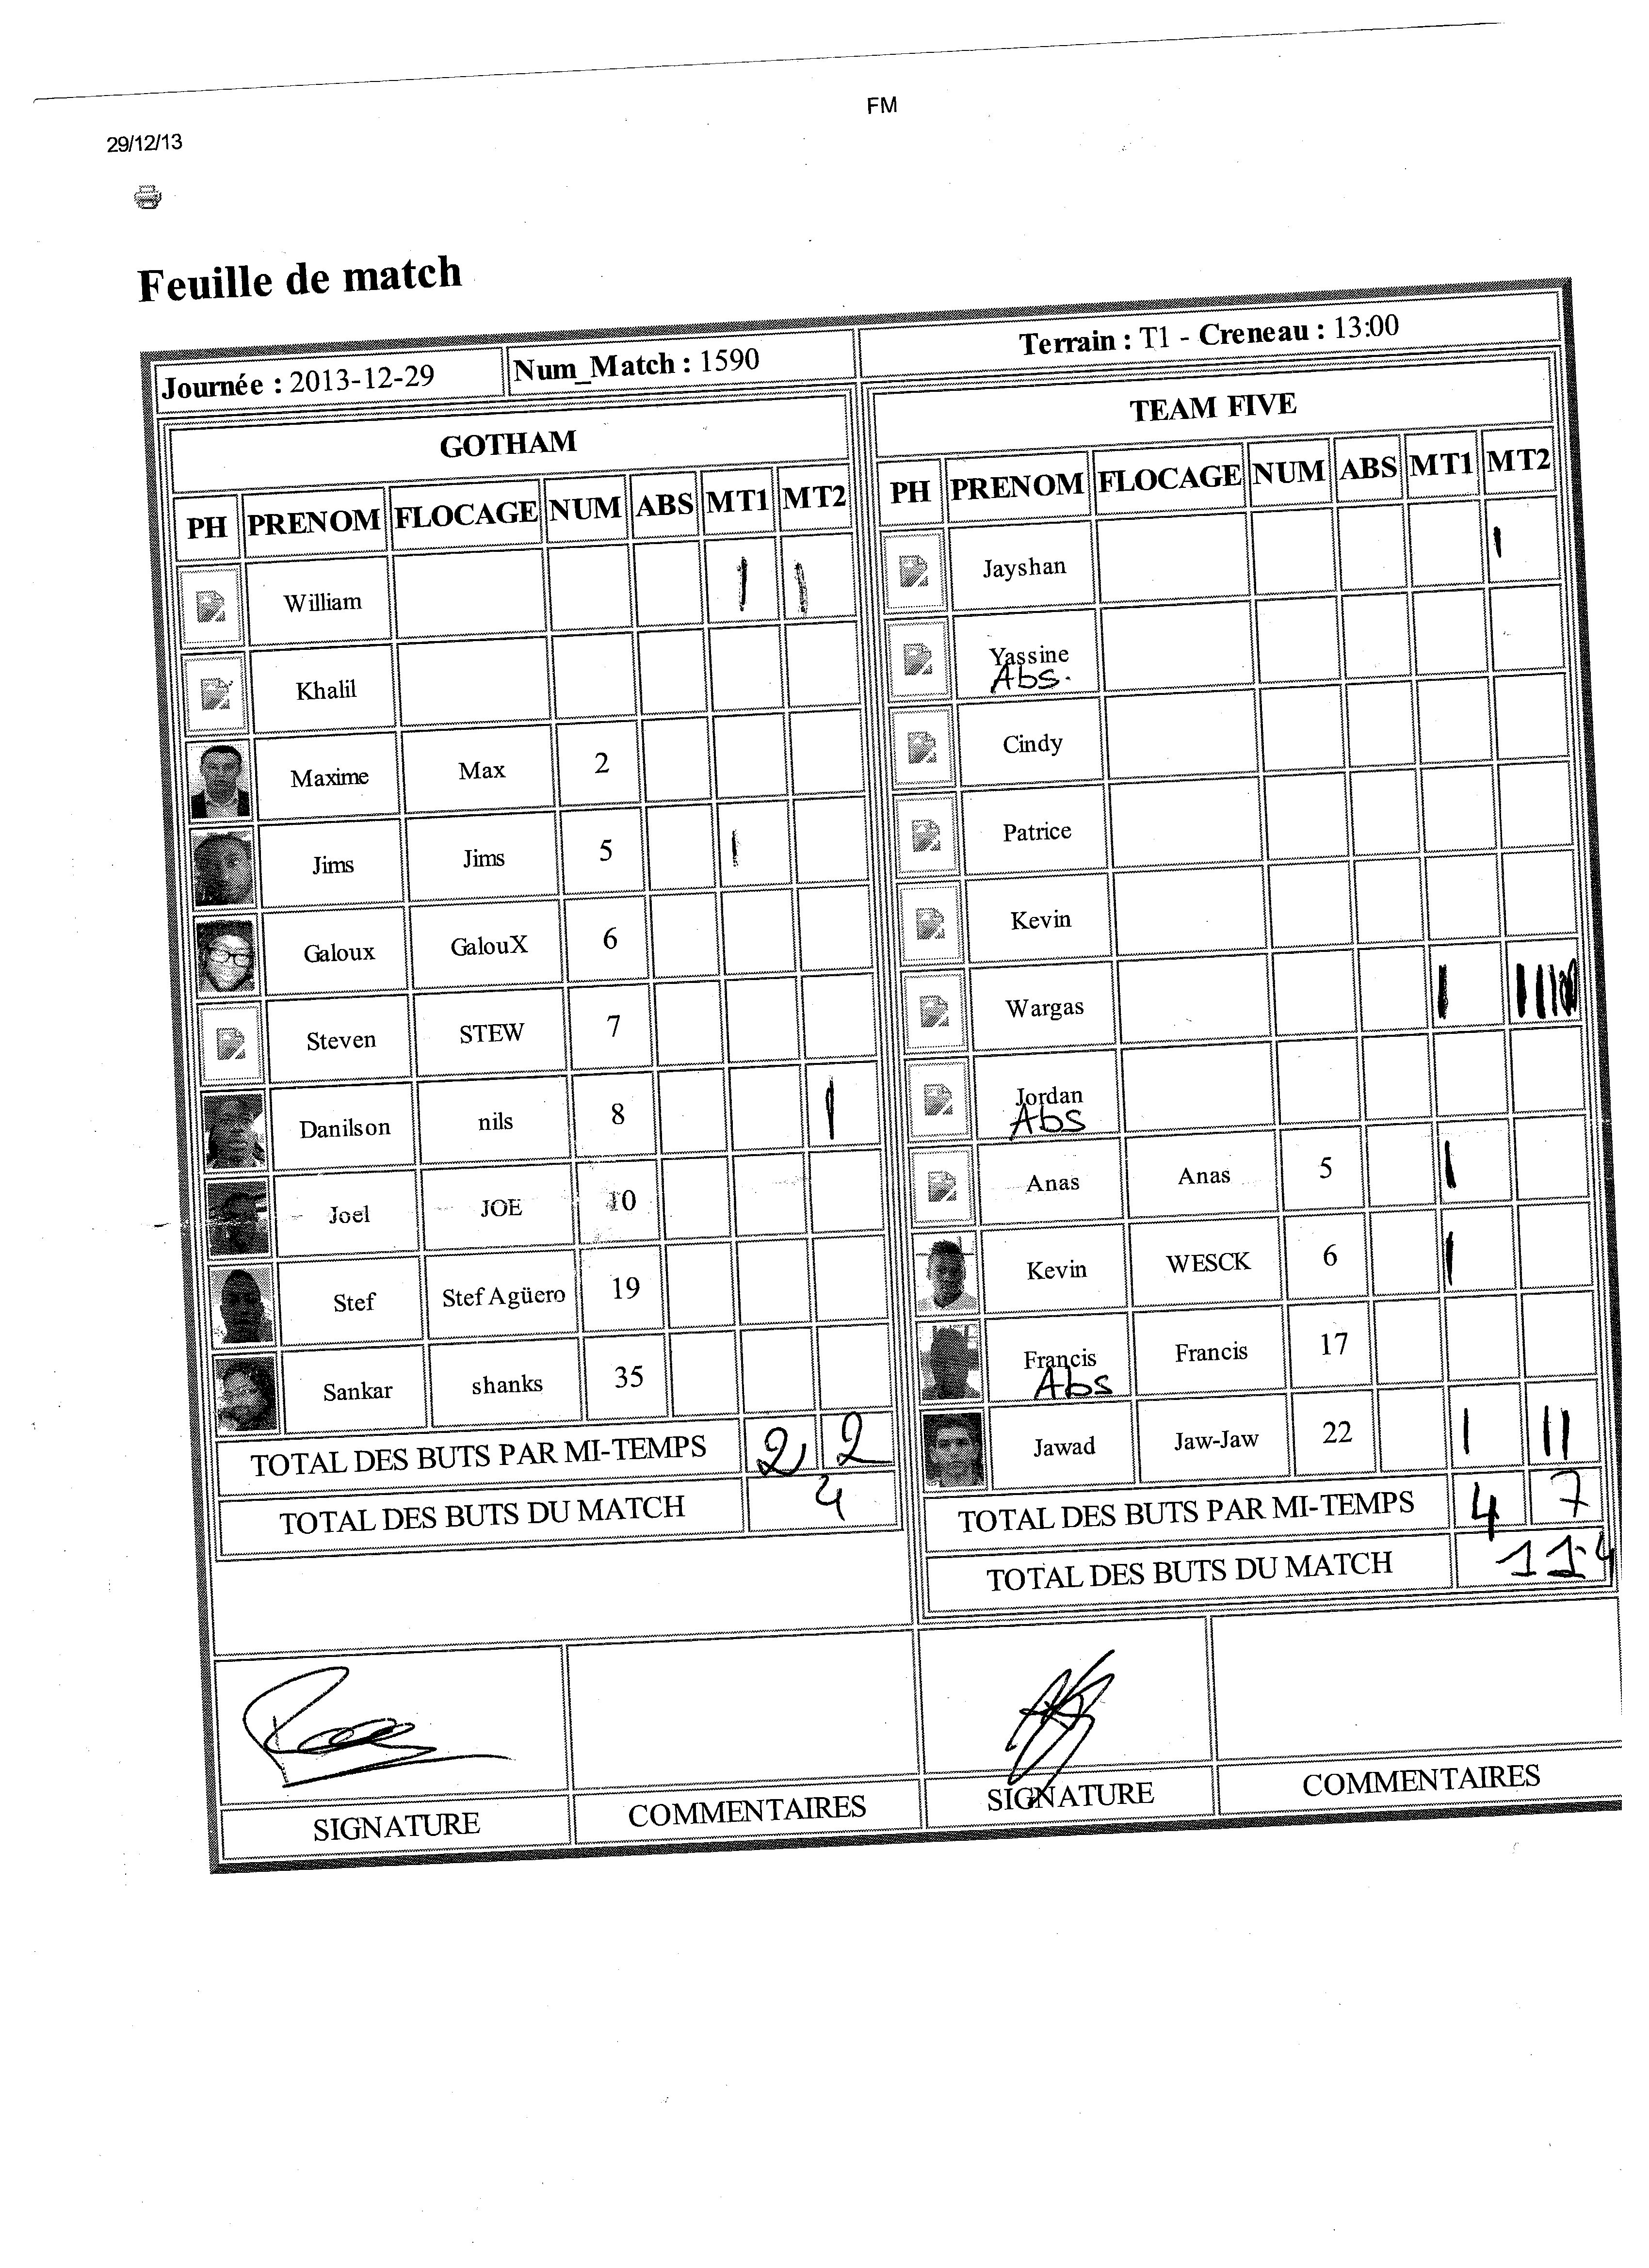 FM
29/12/13
Feuille de match
Journée : 2013-12-29 Num_Match : 1590 Terrain : T1 - Creneau : 13:00
GOTHAM
PH PRENOM FLOCAGE NUM ABS MT1 MT2
William I I
Khalil
Maxime Max 2
Jims Jims 5 I
Galoux GalouX 6
Steven STEW 7
Danilson nils 8 I
Joel JOE 10
Stef Stef Agüero 19
Sankar shanks 35
TOTAL DES BUTS PAR MI-TEMPS 2 2
TOTAL DES BUTS DU MATCH 4
TEAM FIVE
PH PRENOM FLOCAGE NUM ABS MT1 MT2
Jayshan I
Yassine
Abs.
Cindy
Patrice
Kevin
Wargas I
Jordan
Abs
Anas Anas 5 I
Kevin WESCK 6 I
Francis Francis 17
Abs
Jawad Jaw-Jaw 22 I II
TOTAL DES BUTS PAR MI-TEMPS 4 7
TOTAL DES BUTS DU MATCH 11
SIGNATURE COMMENTAIRES SIGNATURE COMMENTAIRES